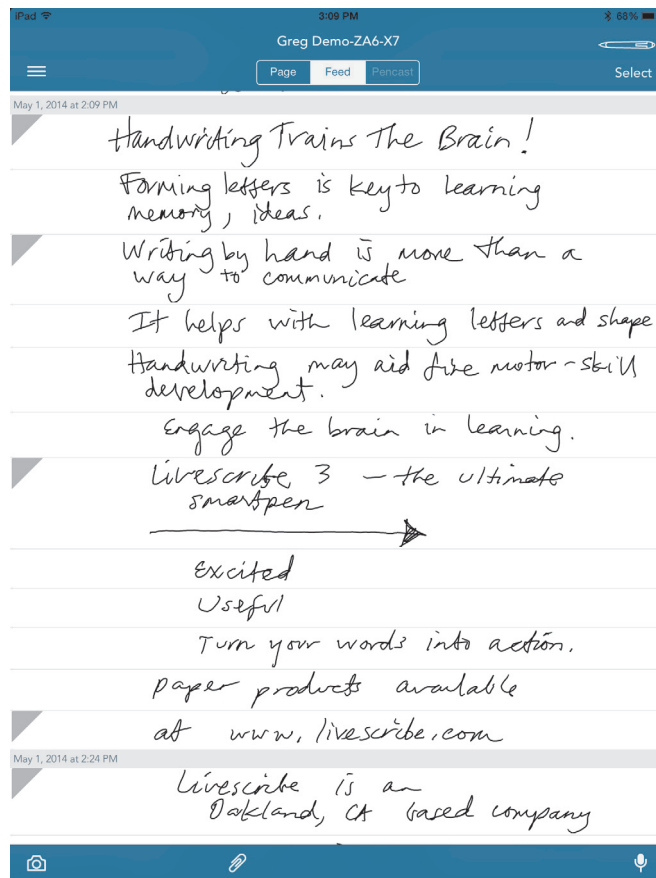 iPad 3:09 PM 68%
Greg Demo-ZA6-X7
Page Feed Pencast Select
May 1, 2014 at 2:09 PM
Handwriting Trains The Brain!
Forming letters is key to learning
memory, ideas.
Writing by hand is more than a
way to communicate
It helps with learning letters and shape
Handwriting may aid fine motor-skill
development.
Engage the brain in learning.
Livescribe 3 – the ultimate
smartpen
Excited
Useful
Turn your words into action.
paper products available
at www.livescribe.com
May 1, 2014 at 2:24 PM
Livescribe is an
Oakland, CA based company